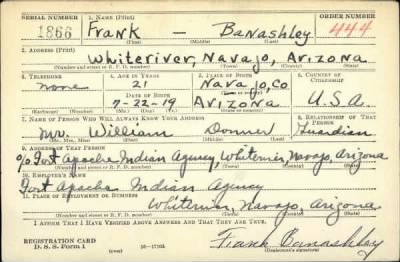 SERIAL NUMBER 1. NAME (Print) ORDER NUMBER
1866 Frank — Banashley 444
(First) (Middle) (Last)
2. ADDRESS (Print)
Whiteriver, Navajo, Arizona
(Number and street or R. F. D. number) (Town) (County) (State)
3. TELEPHONE 4. AGE IN YEARS 5. PLACE OF BIRTH 6. COUNTRY OF CITIZENSHIP
none 21 Navajo, Co
DATE OF BIRTH (Town or county)
7-22-19 Arizona U.S.A.
(Exchange) (Number) (Mo.) (Day) (Yr.) (State or country)
7. NAME OF PERSON WHO WILL ALWAYS KNOW YOUR ADDRESS 8. RELATIONSHIP OF THAT PERSON
Mr. William Donner Guardian
(Mr., Mrs., Miss) (First) (Middle) (Last)
9. ADDRESS OF THAT PERSON
c/o Fort Apache Indian Agency, Whiteriver, Navajo, Arizona
(Number and street or R. F. D. number) (Town) (County) (State)
10. EMPLOYER'S NAME
Fort Apache Indian Agency
11. PLACE OF EMPLOYMENT OR BUSINESS
Whiteriver, Navajo, Arizona
(Number and street or R. F. D. number) (Town) (County) (State)
I AFFIRM THAT I HAVE VERIFIED ABOVE ANSWERS AND THAT THEY ARE TRUE.
REGISTRATION CARD
D. S. S. Form 1 (over) 16—17105 Frank Banashley
(Registrant's signature)